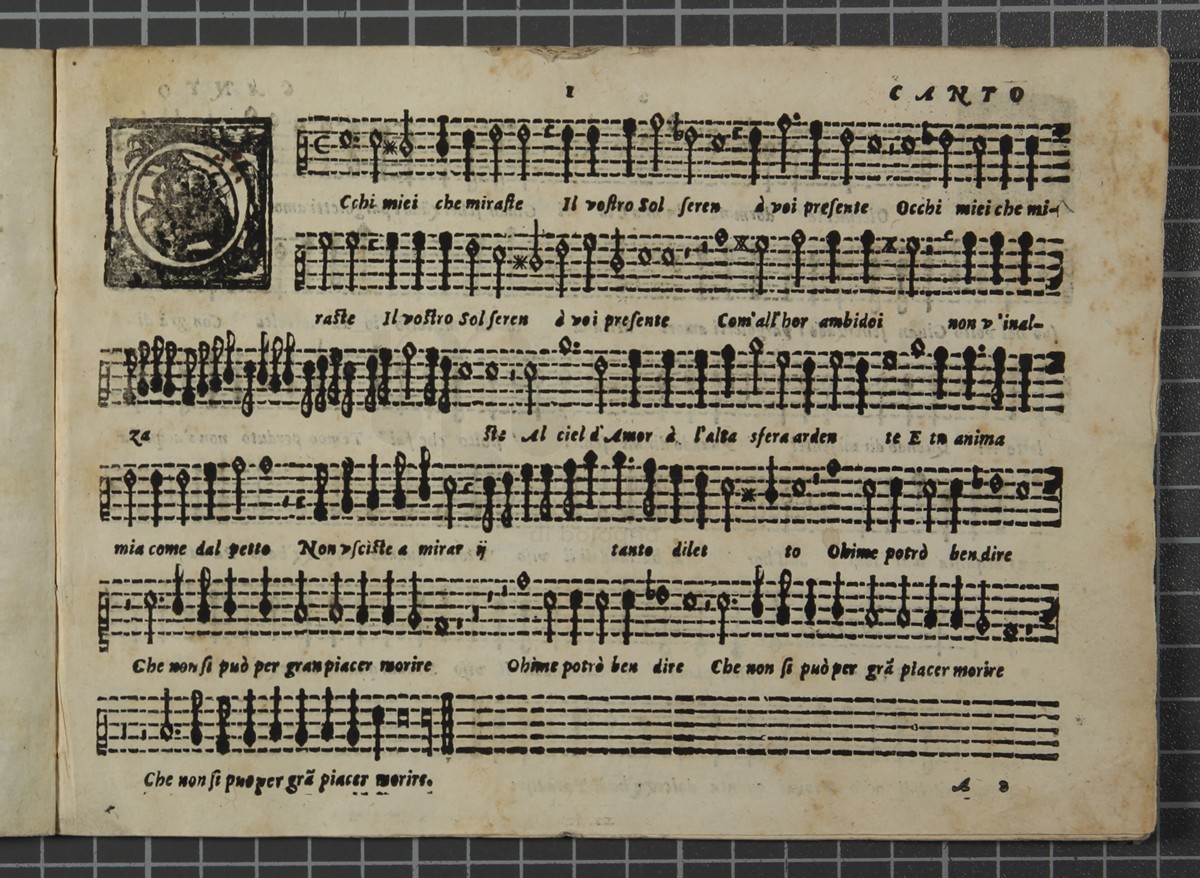 1 CANTO
OCchi miei che miraste Il vostro Sol seren à voi presente Occhi miei che mi-
raste Il vostro Sol seren à voi presente Com'all'hor ambidoi non v'inal-
za ste Al ciel d'Amor à l'alta sfera arden te E tu anima
mia come dal petto Non vsciste a mirar ij tanto dilet to Ohime potrò ben dire
Che non si può per gran piacer morire Ohime potrò ben dire Che non si può per grã piacer morire
Che non si può per grã piacer morire.
A